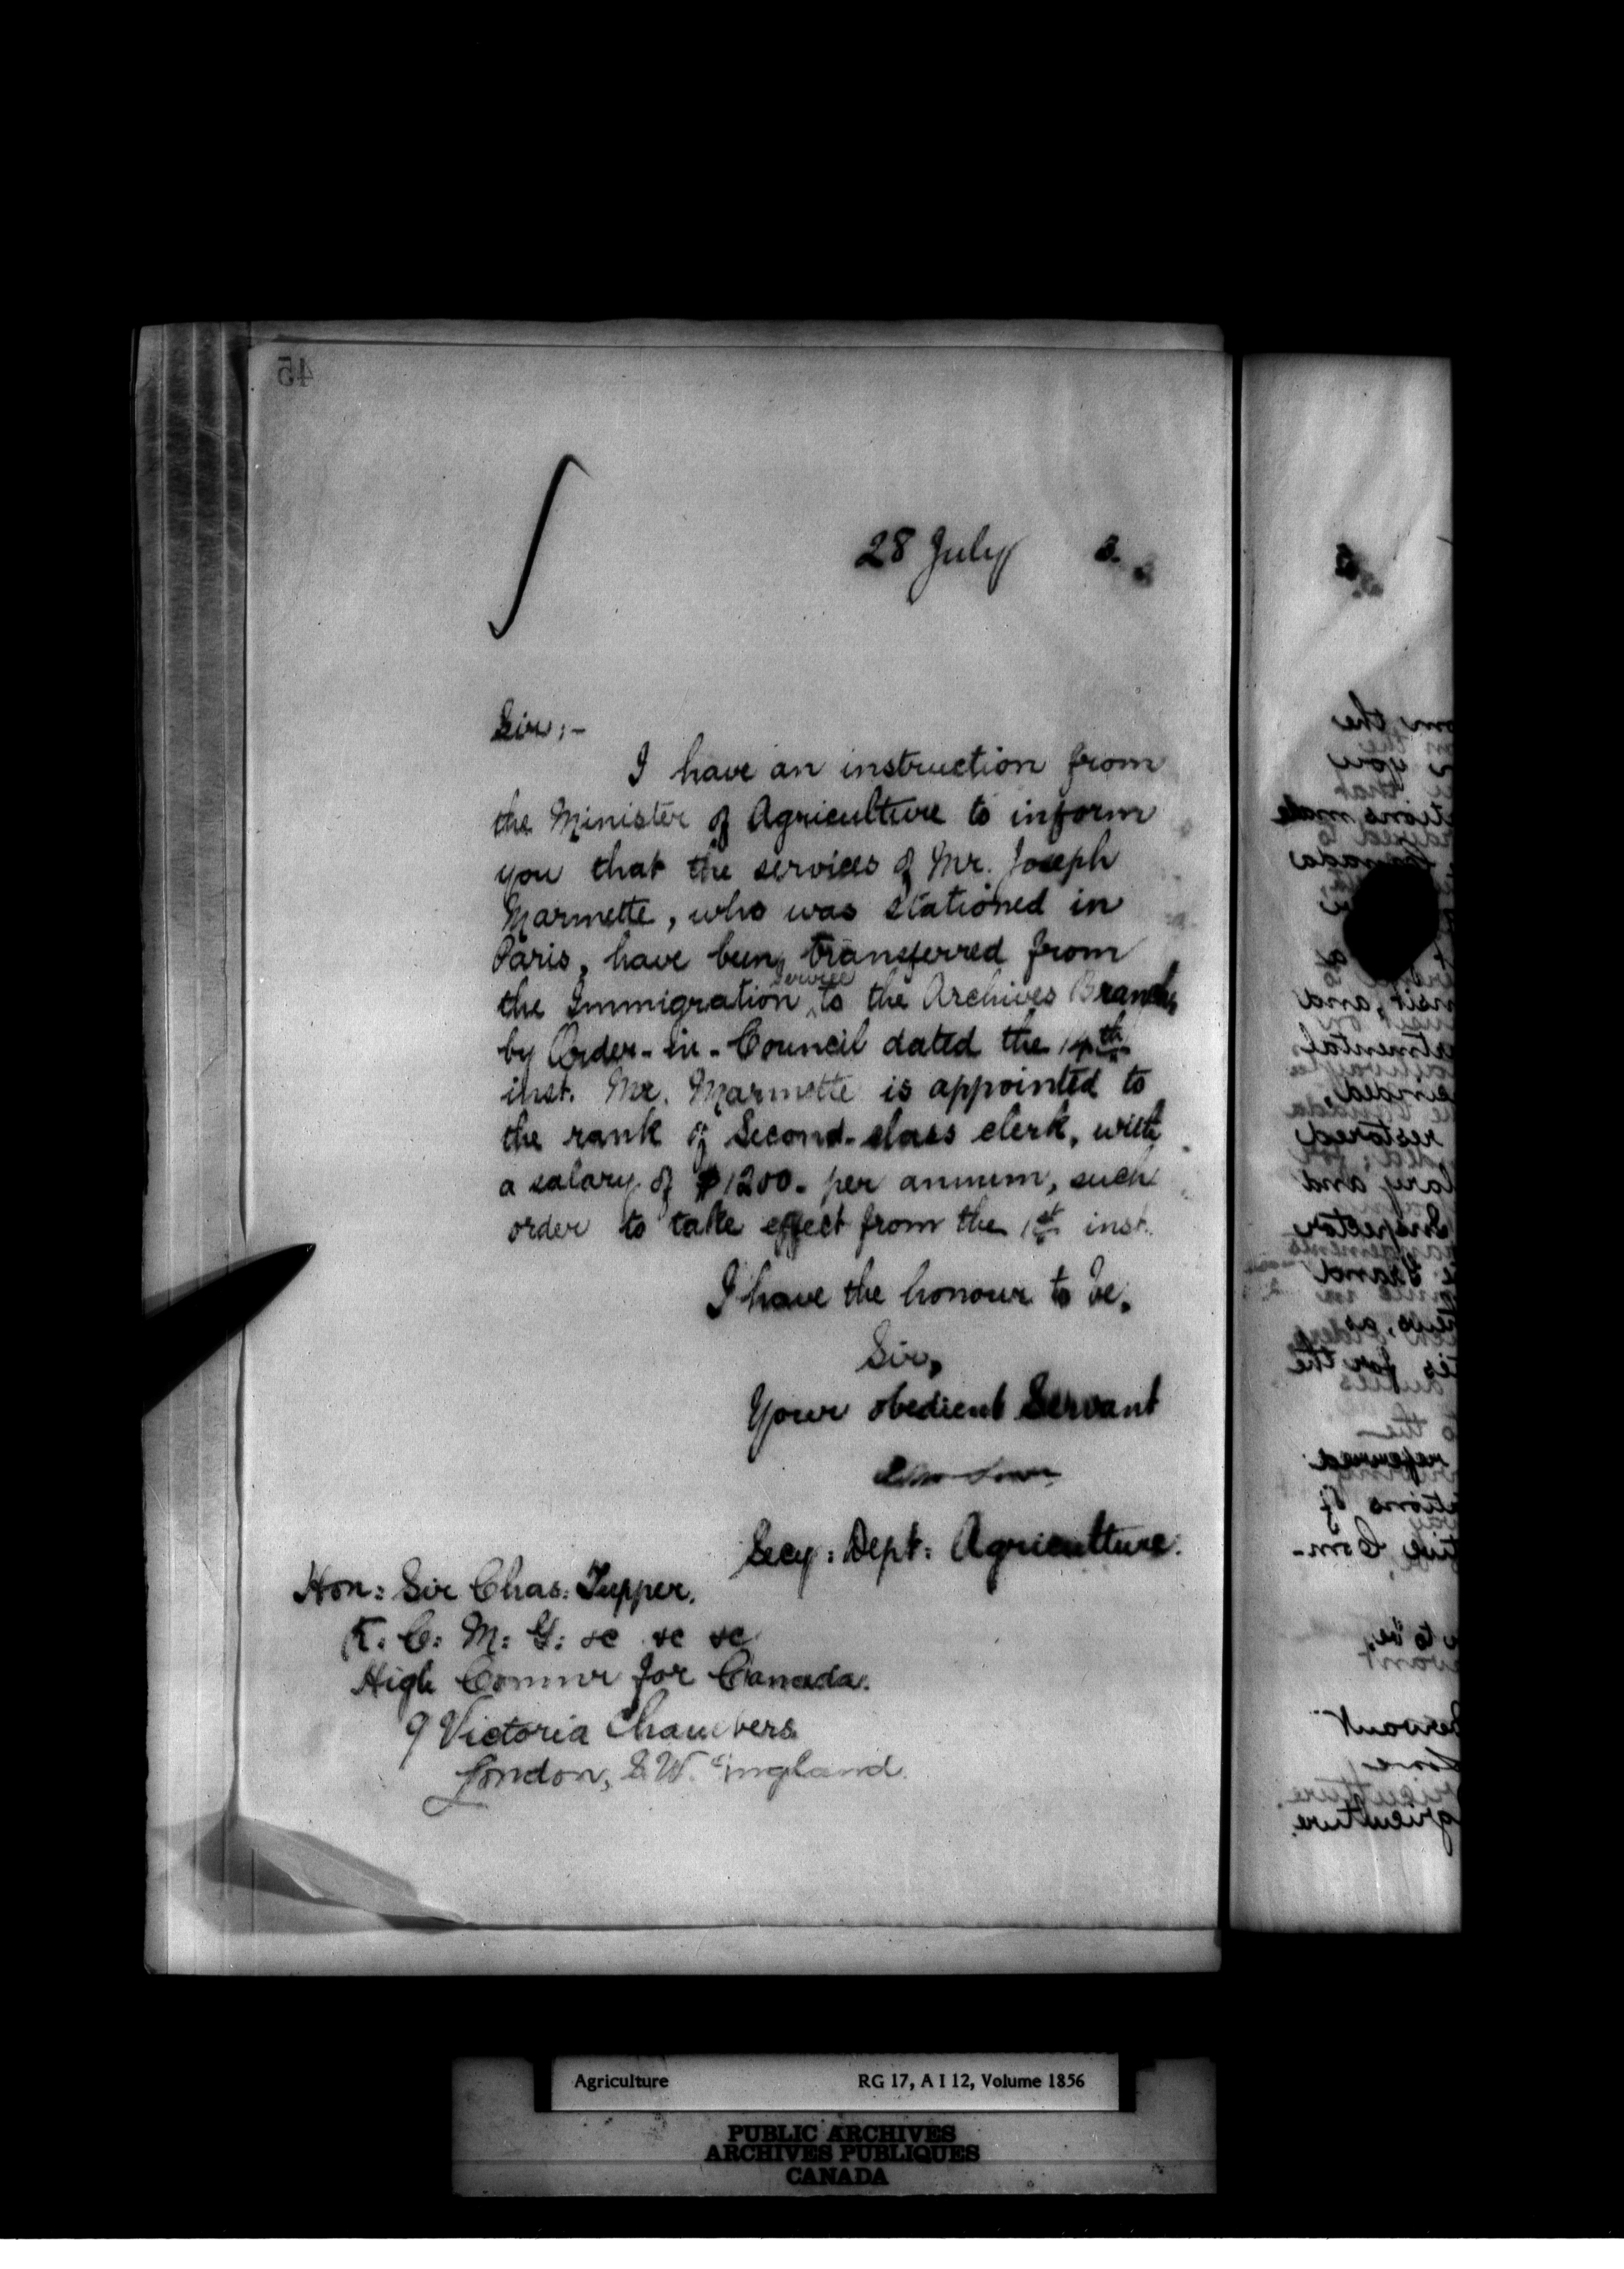 45
28 July 3.
Sir:-
I have an instruction from
the Minister of Agriculture to inform
you that the services of Mr. Joseph
Marmette, who was stationed in
Paris, have been transferred from
the Immigration service to the Archives Branch,
by Order-in-Council dated the 14th
inst. Mr. Marmette is appointed to
the rank of Second-class clerk, with
a salary of $1200. per annum, such
order to take effect from the 1st inst.
I have the honour to be,
Sir,
Your obedient Servant
Secy: Dept: Agriculture.
Hon: Sir Chas: Tupper.
K: C: M: G: &c &c &c
High Commr for Canada.
9 Victoria Chambers
London, S.W. England.
Agriculture RG 17, A I 12, Volume 1856
PUBLIC ARCHIVES
ARCHIVES PUBLIQUES
CANADA